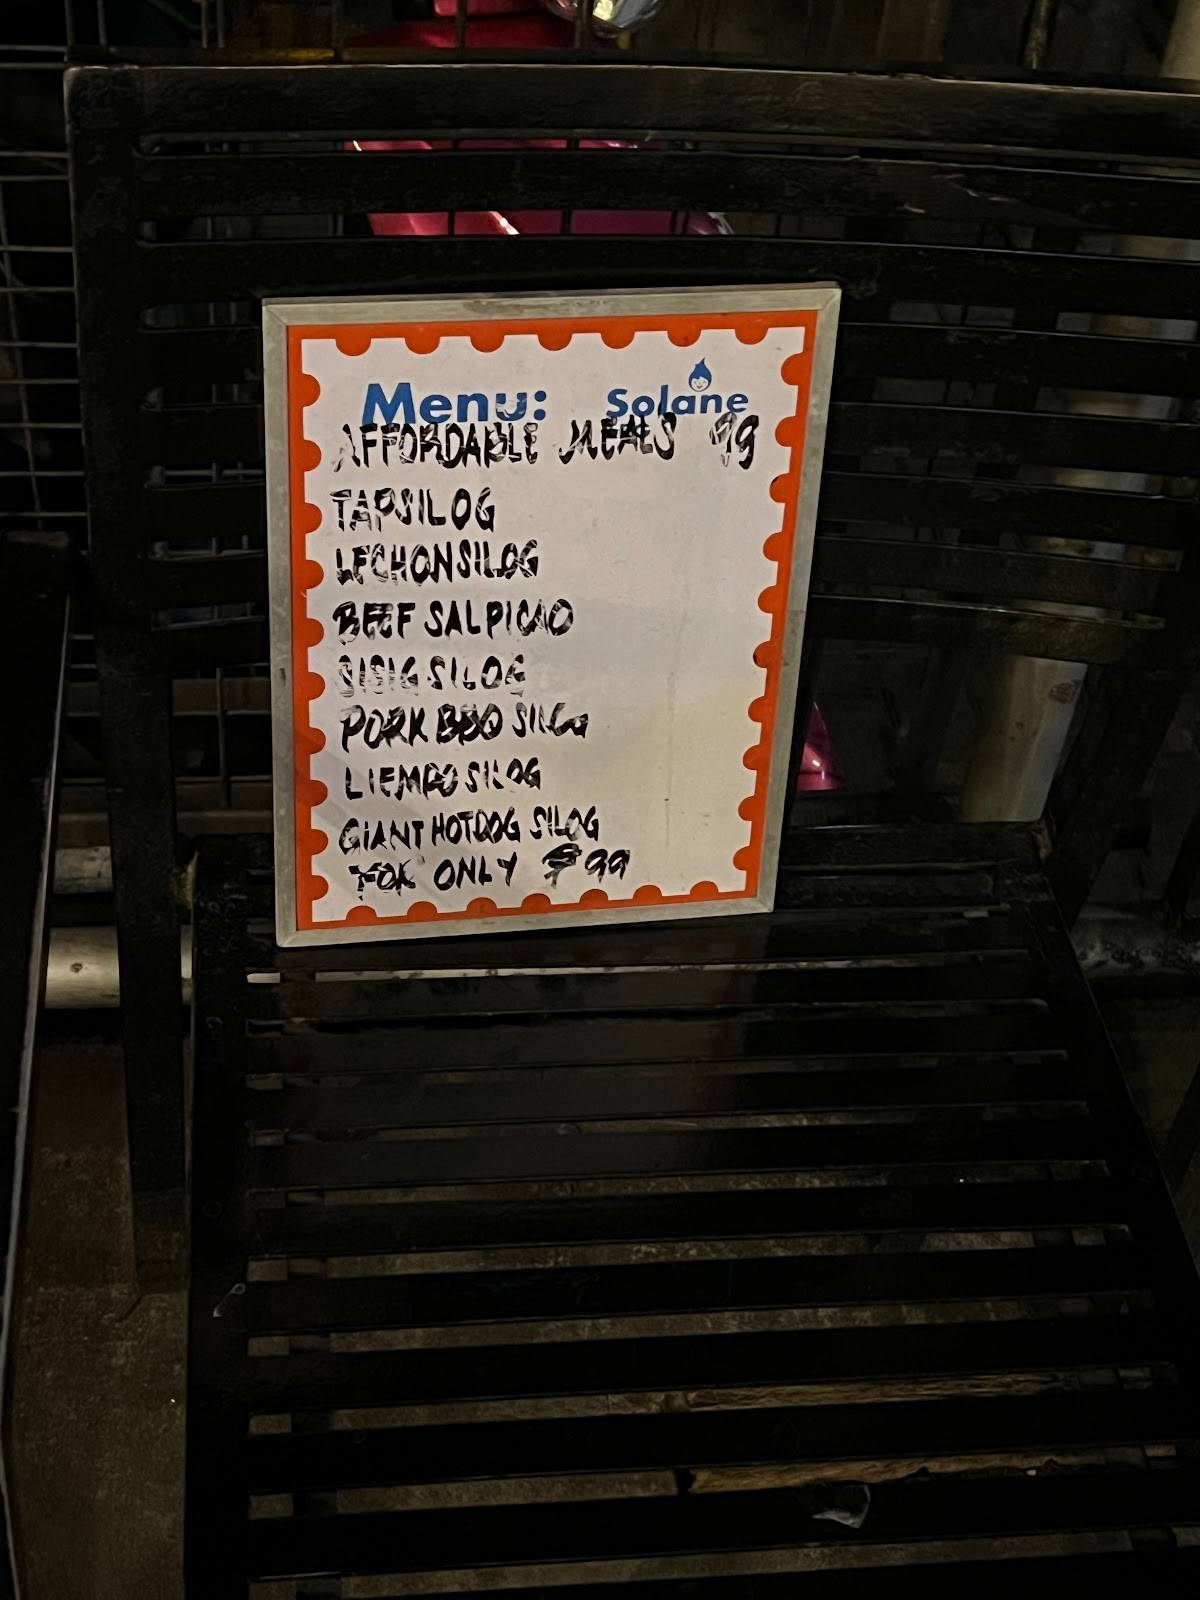 Menu: Solane
AFFORDABLE MEALS 99
TAPSILOG
LECHONSILOG
BEEF SALPICAO
SISIG SILOG
PORK BBQ SILOG
LIEMPO SILOG
GIANT HOTDOG SILOG
FOR ONLY ₱99